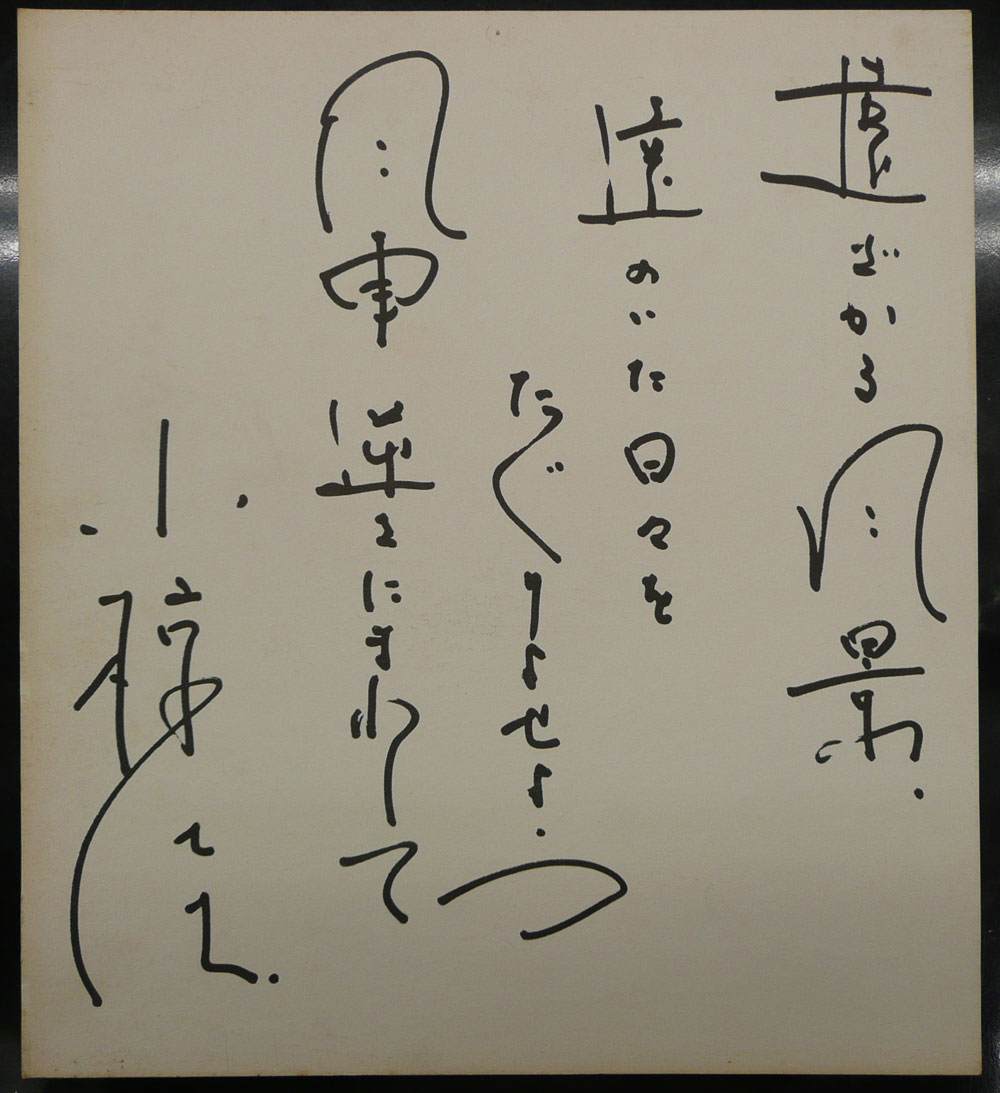 遠ざかる風景.
遠のいた日々を
たぐりよせよう
風車 逆さにまわして
小椋 佳.